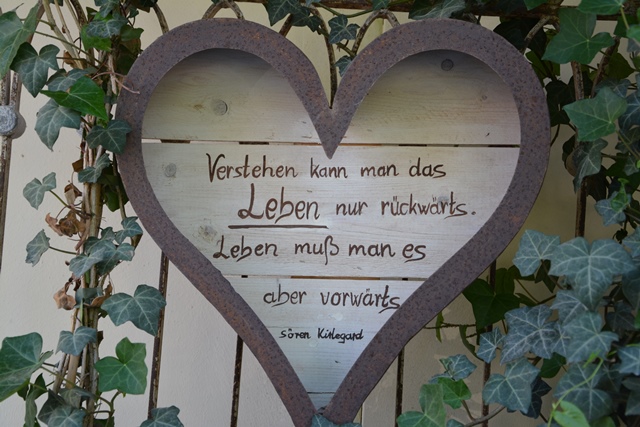 Verstehen kann man das
Leben nur rückwärts.
Leben muß man es
aber vorwärts
sören Kirlegard